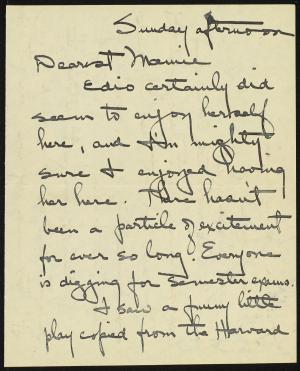 Sunday afternoon
Dearest Mamie
Edio certainly did
seem to enjoy herself
here, and I'm mighty
sure I enjoyed having
her here. There hasn't
been a particle of excitement
for ever so long. Everyone
is digging for Semester exams.
I saw a funny little
play copied from the Harvard